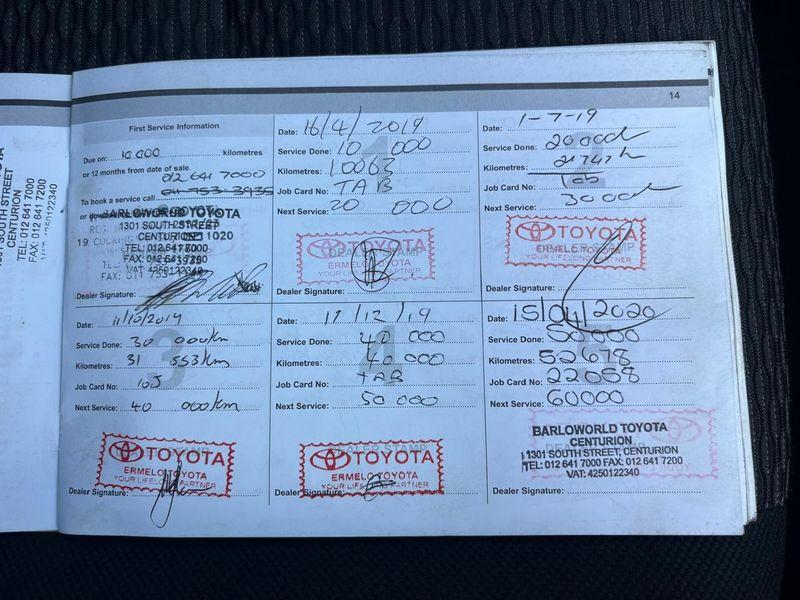 14
First Service Information
Due on: 10 000 kilometres
or 12 months from date of sale.
012 641 7000
To book a service call 011 953 3935
BARLOWORLD TOYOTA
1301 SOUTH STREET
CENTURION
TEL: 012 641 7000
FAX: 012 641 7200
VAT 4250122340
Dealer Signature:
Date: 16/4/2019
Service Done: 10 000
Kilometres: 10063
Job Card No: TAB
Next Service: 20 000
DEALER STAMP
TOYOTA
ERMELO TOYOTA
YOUR LIFELONG PARTNER
Dealer Signature:
Date: 1-7-19
Service Done: 20 000
Kilometres:
Job Card No: Tab
Next Service: 30 000
DEALER STAMP
TOYOTA
ERMELO TOYOTA
YOUR LIFELONG PARTNER
Dealer Signature:
3
Date: 11/10/2019
Service Done: 30 000km
Kilometres: 31 553km
Job Card No:
Next Service: 40 000km
TOYOTA
ERMELO TOYOTA
YOUR LIFELONG PARTNER
Dealer Signature:
4
Date: 17/12/19
Service Done: 40 000
Kilometres: 40 000
Job Card No: TAB
Next Service: 50 000
DEALER STAMP
TOYOTA
ERMELO TOYOTA
YOUR LIFELONG PARTNER
Dealer Signature:
Date: 15/04/2020
Service Done: 50,000
Kilometres: 52678
Job Card No: 22058
Next Service: 60000
BARLOWORLD TOYOTA
CENTURION
1301 SOUTH STREET, CENTURION
TEL: 012 641 7000 FAX: 012 641 7200
VAT: 4250122340
Dealer Signature:
SOUTH STREET
CENTURION
TEL: 012 641 7000
FAX: 012 641 7200
VAT 4250122340